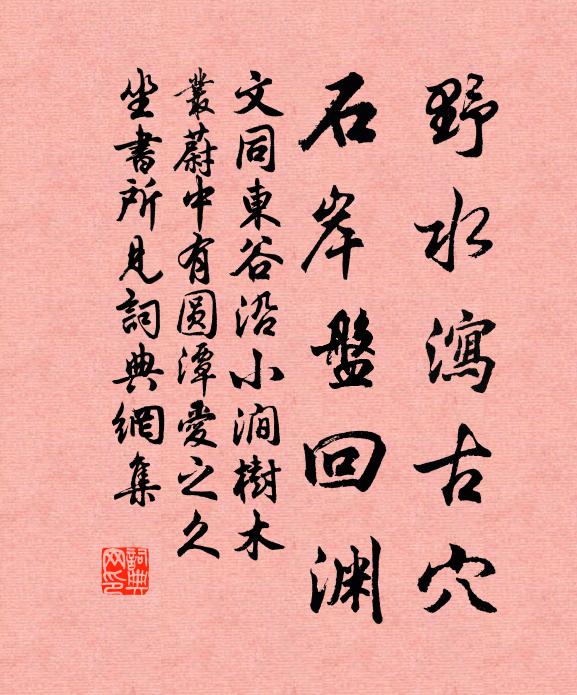 野水瀉古穴
石岸盤回渊
文同東谷沿小澗樹木
叢蔚中有圆潭愛之久
坐書所見詞典網集
詞典网印